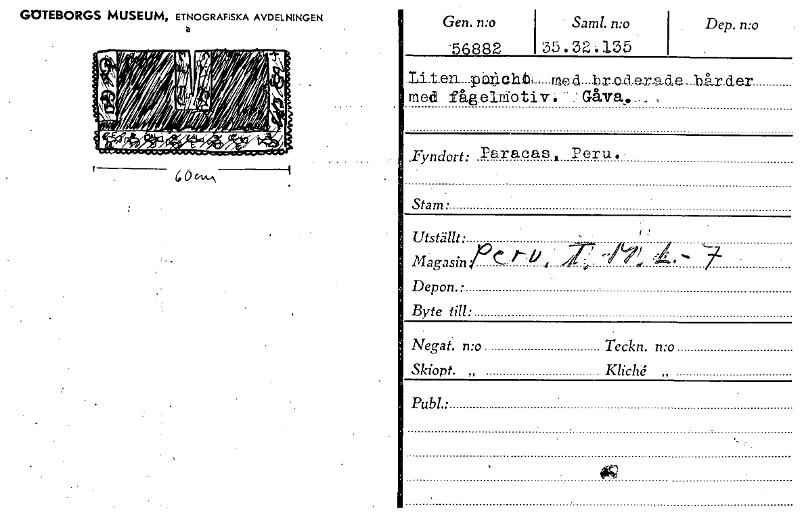 GÖTEBORGS MUSEUM, ETNOGRAFISKA AVDELNINGEN
60cm
Gen. n:o Saml. n:o Dep. n:o
56882 35.32.135
Liten poncho med broderade bårder
med fågelmotiv. Gåva.
Fyndort: Paracas, Peru.
Stam:
Utställt:
Magasin: Peru. I. M. L.-7
Depon.:
Byte till:
Negat. n:o Teckn. n:o
Skiopt. „ Kliché „
Publ.: